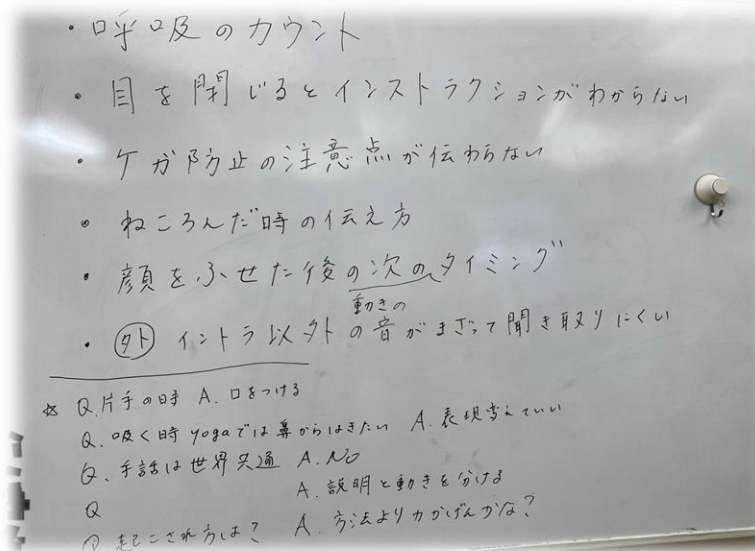 ・呼吸のカウント
・目を閉じるとインストラクションがわからない
・ケガ防止の注意点が伝わらない
・ねころんだ時の伝え方
・顔をふせた後の次のタイミング
動きの
・外 イントラ以外の音がまざって聞き取りにくい
☆ Q.片手の時 A.口をつける
Q.吸く時yogaでは鼻からはきたい A.表現変えていい
Q.手話は世界共通 A.NO
Q A.説明と動きを分ける
Q 起こされ方は? A.方法より力かげんかな?